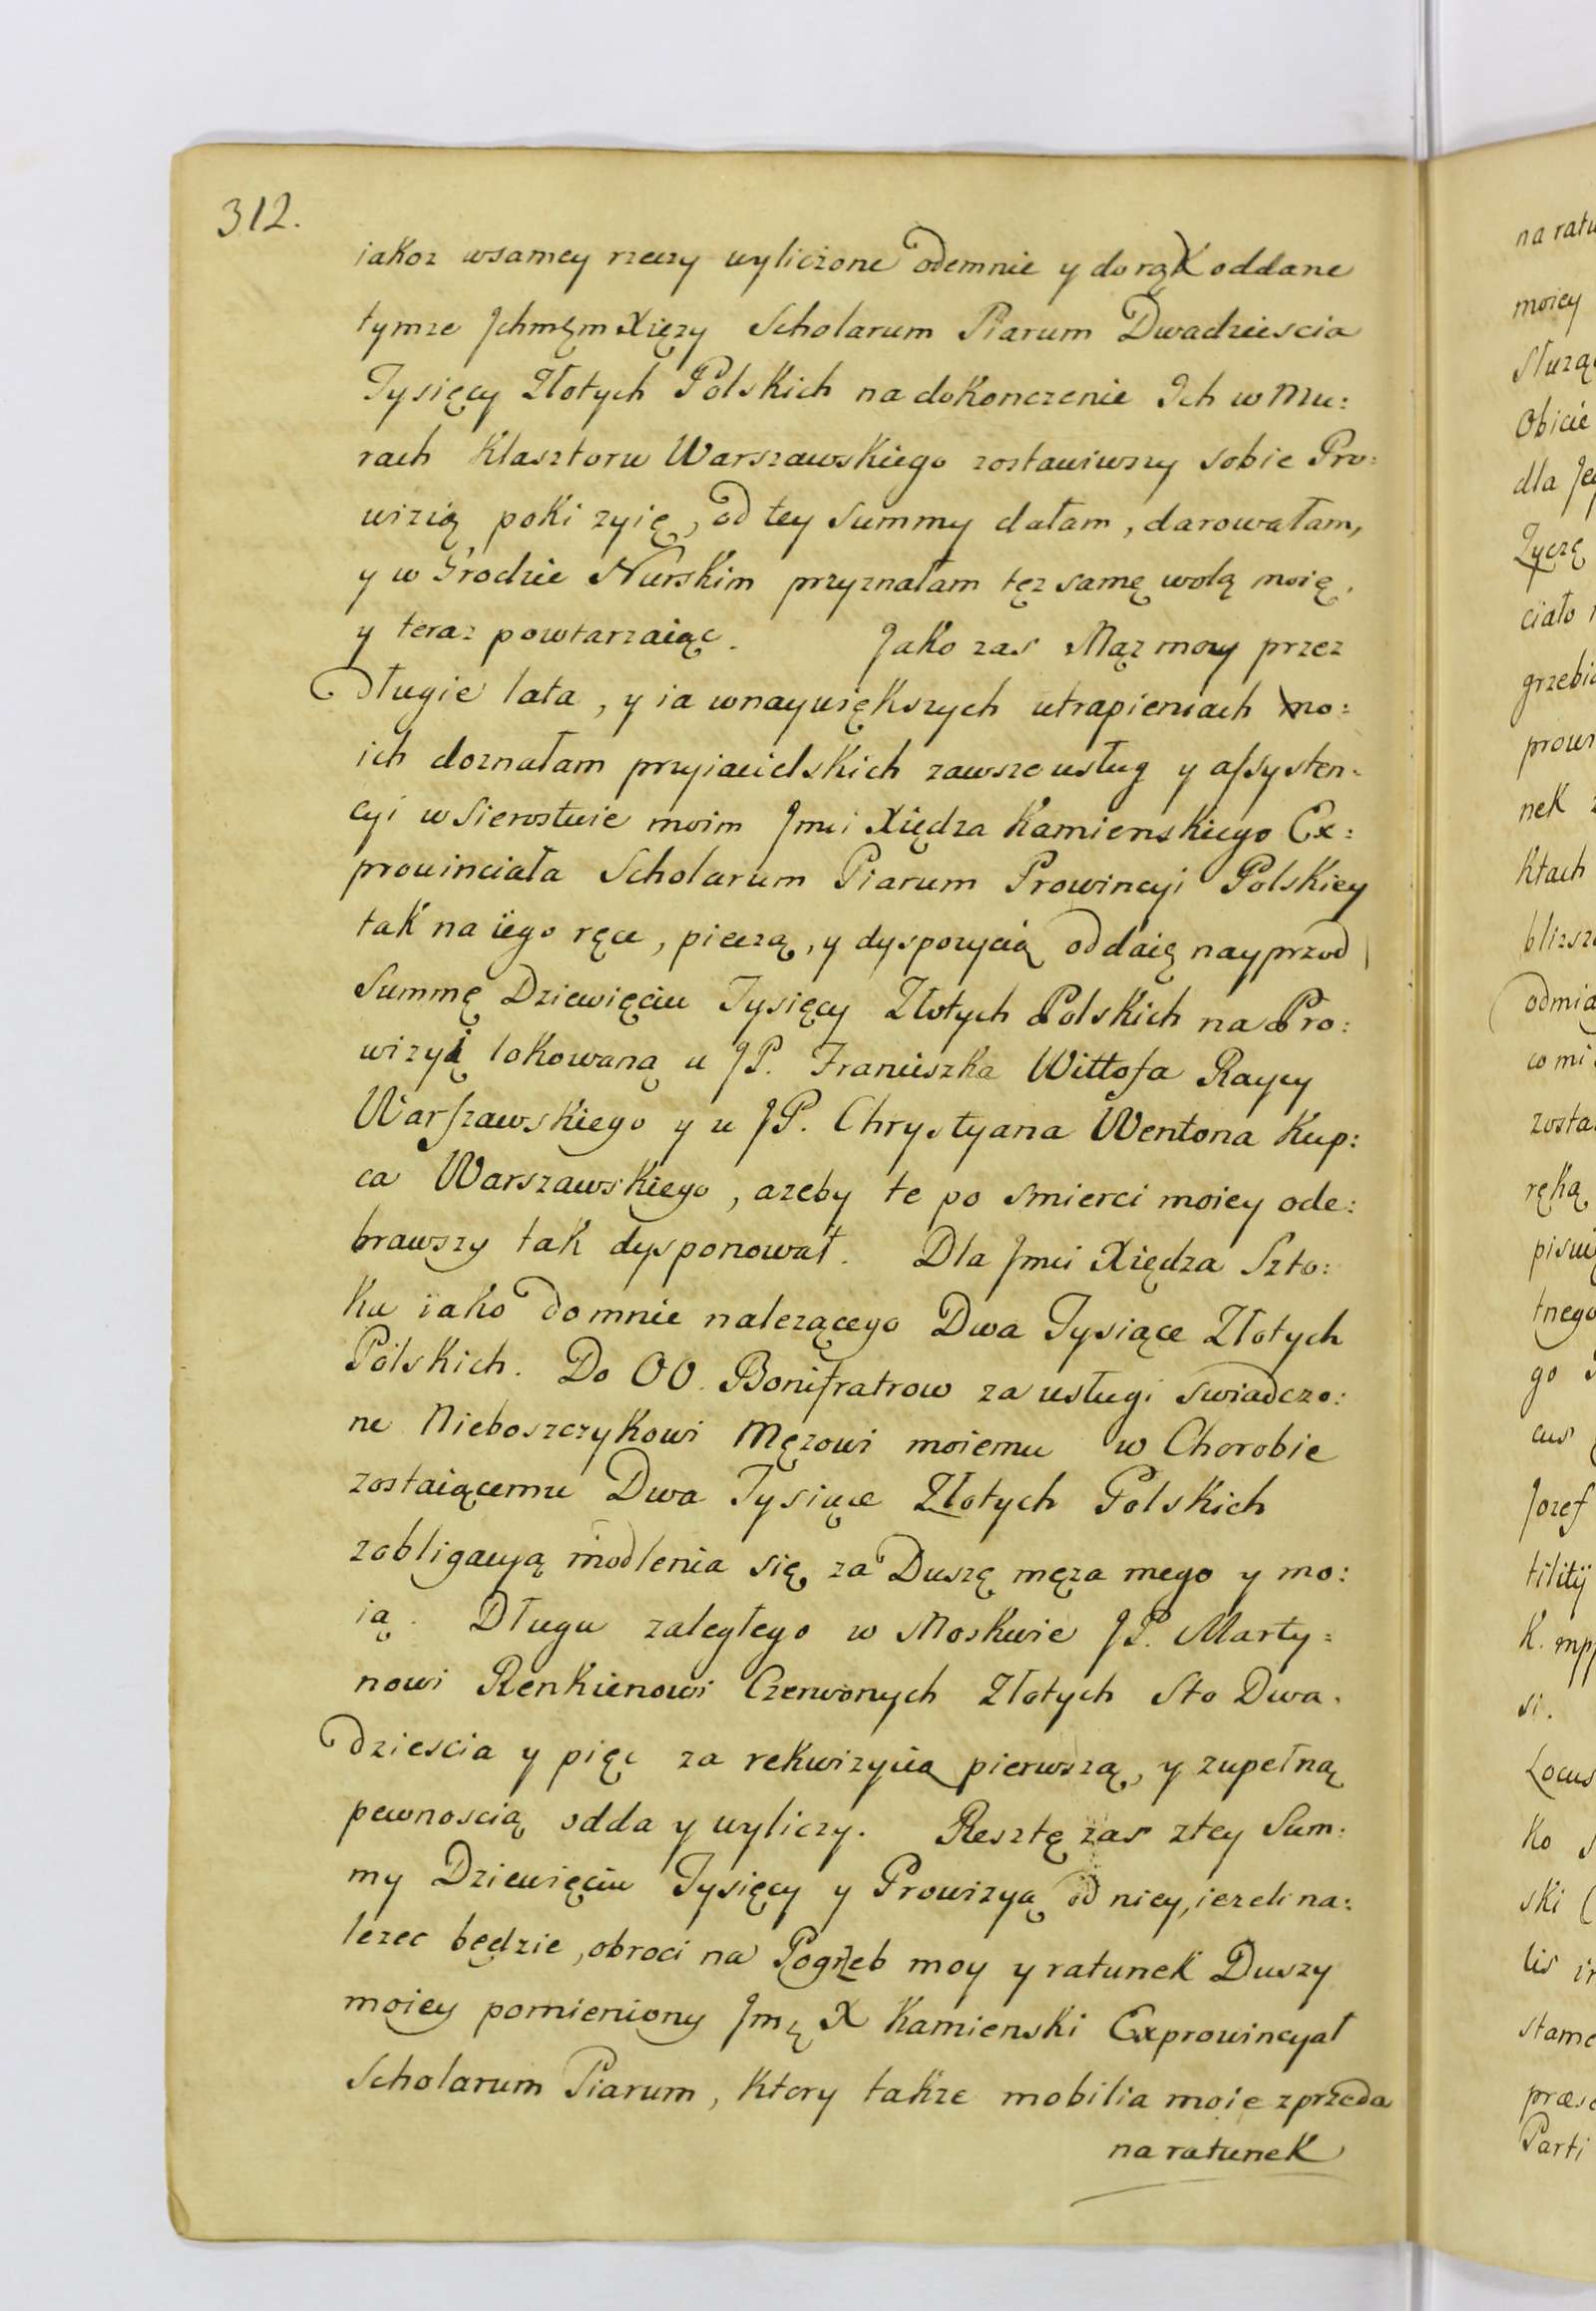 312.
iakoz wsamey rzeczy wyliczone odemnie y do rąk oddane
tymze Jchmęm Xięzy Scholarum Piarum Dwadziescia
Tysięcy Złotych Polskich na dokonczenie Ich w Mu:
rach Klasztoru Warszawskiego zostawiwszy sobie Pro:
wizią poki zyię, od tey Summy dałam, darowałam,
y w Grodzie Nurskim przyznałam tęz samę wolą moię,
y teraz powtarzaiąc. Jako zas Mąz moy przez
Długie lata, y ia wnaywiększych utrapieniach mo:
ich doznałam przyiacielskich zawsze usług y assysten:
cyi w Sierostwie moim Jmci Xiędza Kamienskiego Ex:
prowinciała Scholarum Piarum Prowincyi Polskiey
tak na iego ręce, pieczą, y dyspozycią oddaię nayprzod
Summę Dziewięciu Tysięcy Złotych Polskich na Pro:
wizyą lokowaną u JP. Franciszka Wittofa Raycy
Warszawskiego y u JP. Chrystyana Wentona Kup:
ca Warszawskiego, azeby te po smierci moiey ode:
brawszy tak dysponował. Dla Jmci Xiędza Szto:
ku iako do mnie nalezącego Dwa Tysiące Złotych
Polskich. Do OO. Bonifratrow za usługi swiadczo:
ne Nieboszczykowi Męzowi moiemu w Chorobie
zostaiącemu Dwa Tysiące Złotych Polskich
zobligacyą modlenia się za Duszę męza mego y mo:
ią. Długu zaległego w Moskwie JP. Marty:
nowi Renkienowi Czerwonych Złotych Sto Dwa:
dziescia y pięc za rekwizycią pierwszą, y zupełną
pewnoscią odda y wyliczy. Resztę zas ztey Sum:
my Dziewięciu Tysięcy y Prowizyą od niey, iezeli na:
lezec będzie, obroci na Pogrzeb moy y ratunek Duszy
moiey pomieniony Jmę X Kamienski Exprowincyał
Scholarum Piarum, Ktory takze mobilia moie zprzeda
na ratunek
moiey
Obicie
dla
Zyczę
ciało
nek
ktach
co mi
ręką
tnego
go
Jozef
K. mpp
si.
Locus
ko
ski
lis
Parti